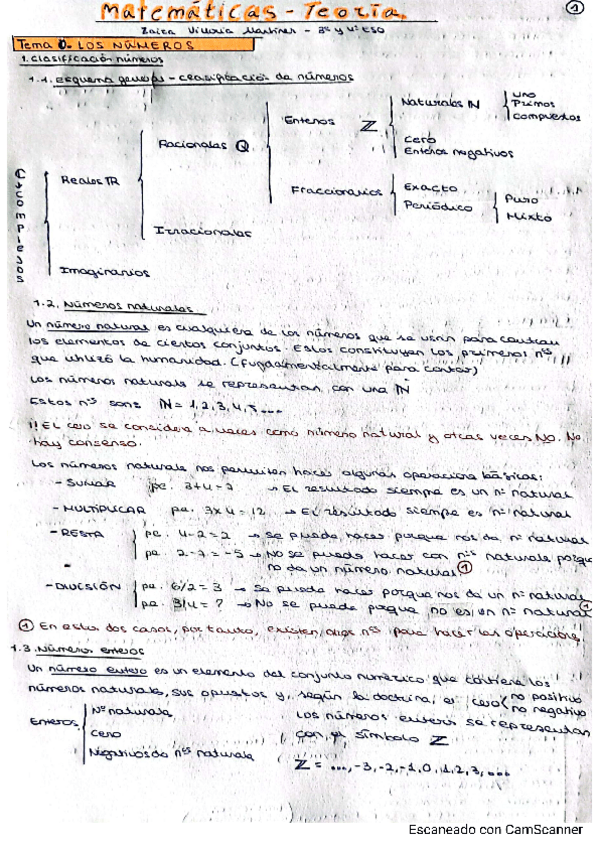 Matemáticas - Teoría.
1
Zaira Victoria Martínez - 3º y 4º ESO
Tema 0. LOS NÚMEROS
1. Clasificación números
1.1. Esquema general - clasificación de números
Complejos
Reales IR
Racionales Q
Enteros Z
Naturales IN
uno
Primos
compuestos
cero
Enteros negativos
Fraccionarios
Exacto
Periódico
Puro
Mixto
Irracionales
Imaginarios
1.2. Números naturales
Un número natural es cualquiera de los números que se usan para contar
los elementos de ciertos conjuntos. Estos constituyen los primeros nºs
que utilizó la humanidad. (Fundamentalmente para contar)
Los números naturales se representan con una IN
Estos nºs sons IN = 1, 2, 3, 4, 5 ...
¡¡ EL cero se considera a veces como número natural y otras veces NO. No
hay consenso.
Los números naturales nos permiten hacer algunas operaciones básicas:
- SUMAR pe. 3+4=7 → EL resultado siempre es un nº natural
- MULTIPLICAR pe. 3x4=12 → EL resultado siempre es nº natural
- RESTA pe. 4-2=2 → se puede hacer porque nos da nº natural
pe. 2-7=-5 → No se puede hacer con nºs naturales porque
no da un número natural 1
- DIVISIÓN pe. 6/2=3 → Se puede hacer porque nos da un nº natural
pe. 3/4=? → No se puede porque no es un nº natural 1
1 En estos dos casos, por tanto, existen otros nºs para hacer las operaciones
1.3. Números enteros
Un número entero es un elemento del conjunto numérico que contiene los
números naturales, sus opuestos y, según la doctrina, el cero no positivo
no negativo
Enteros
Nº naturales
cero
Negativos de nºs naturales
Los números enteros se representan
con el símbolo Z
Z = ..., -3, -2, -1, 0, 1, 2, 3, ...
Escaneado con CamScanner